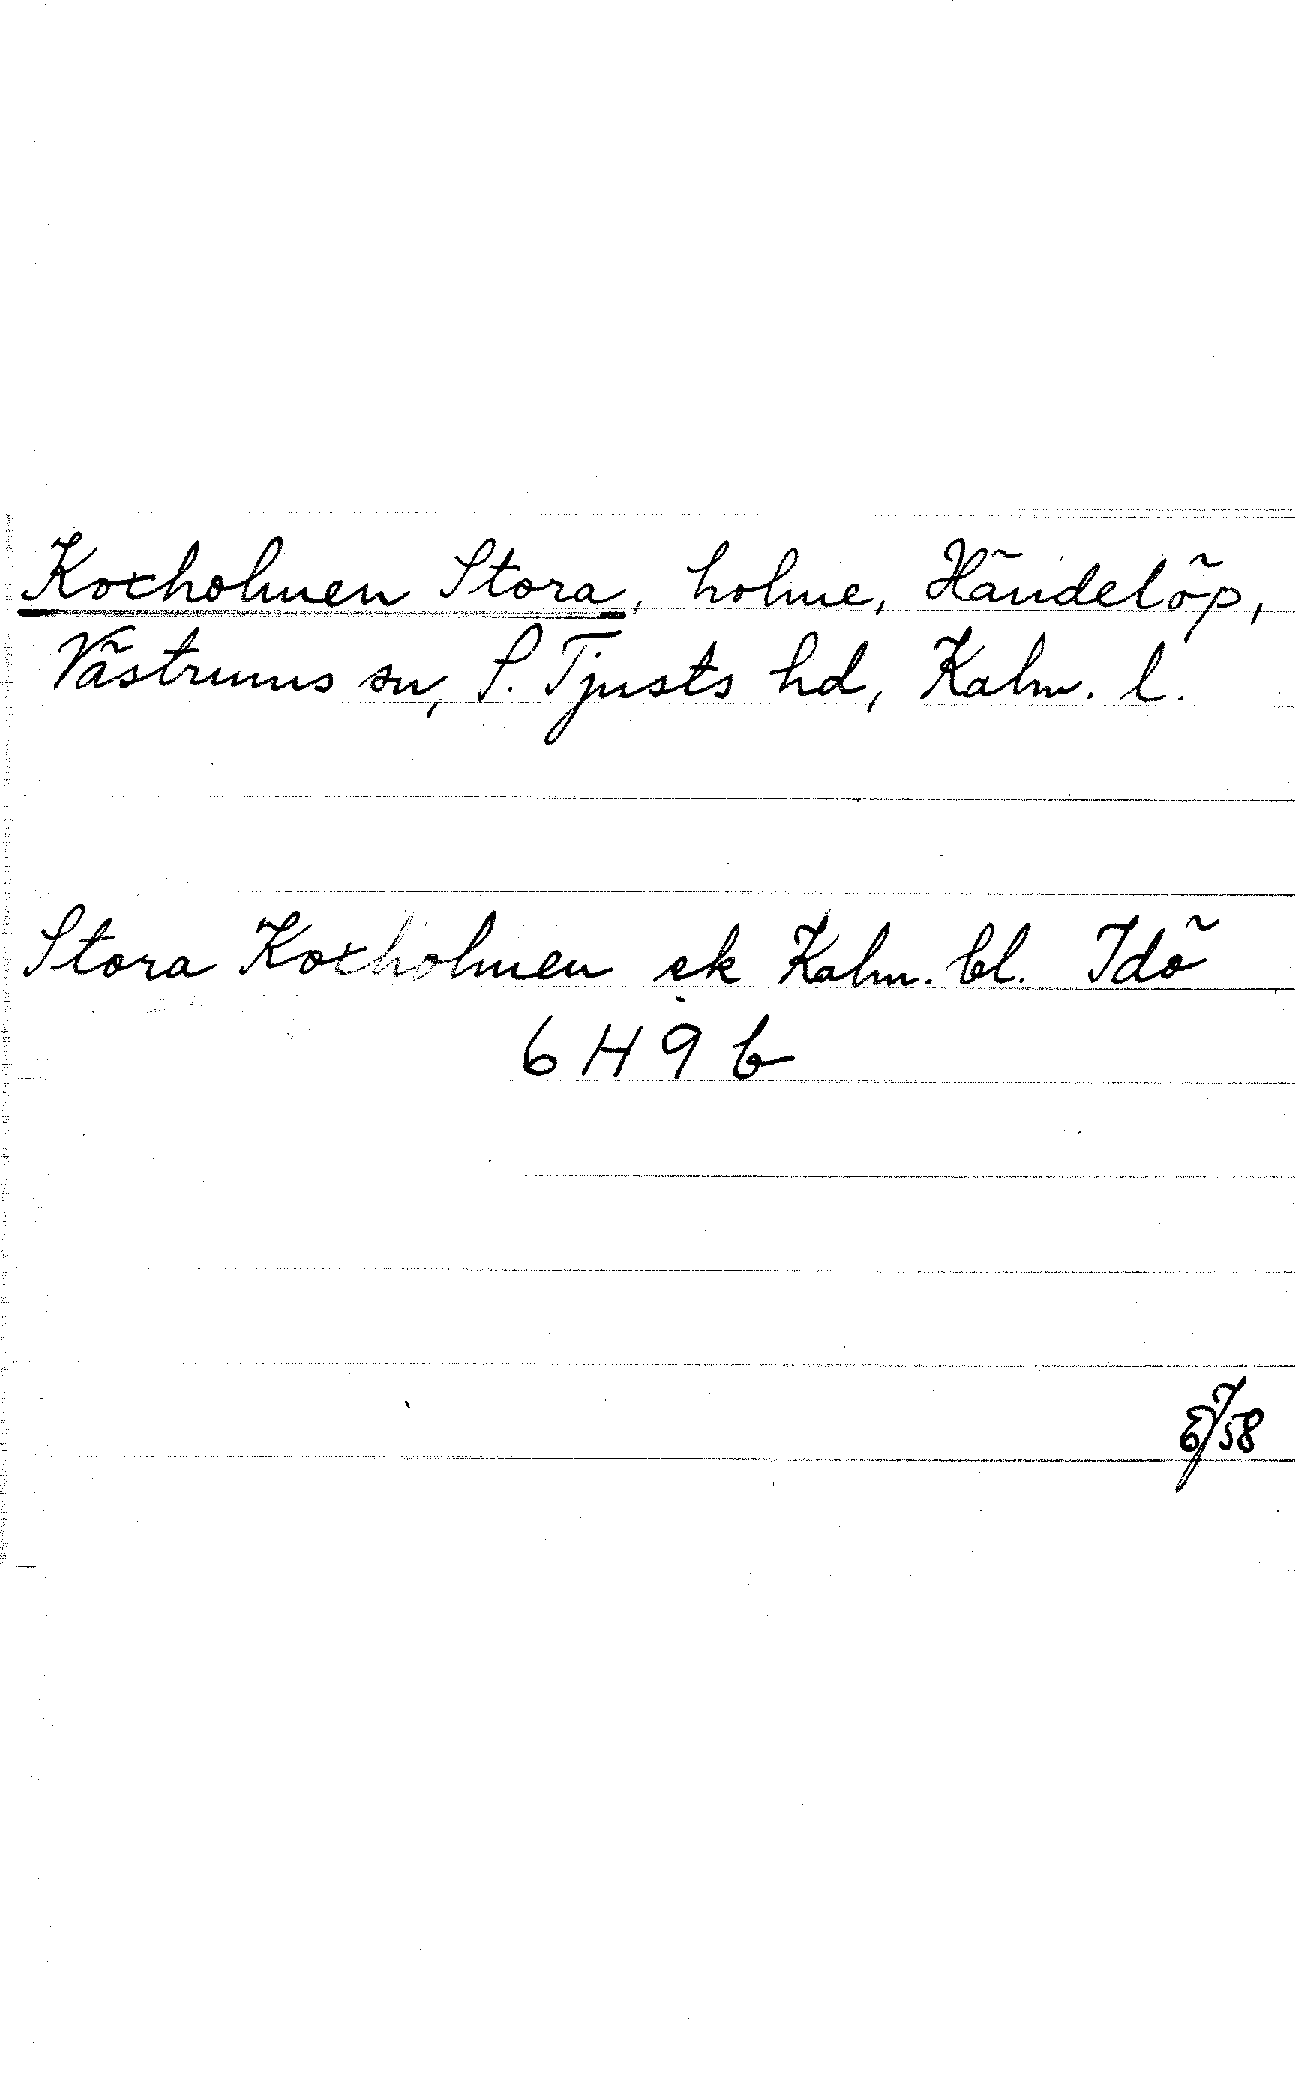 Koxholmen Stora, holme, Händelöp,
Västrums sn, S. Tjusts hd, Kalm. l.
Stora Koxholmen ek Kalm. bl. Idö
6 H 9 b
6/7 58